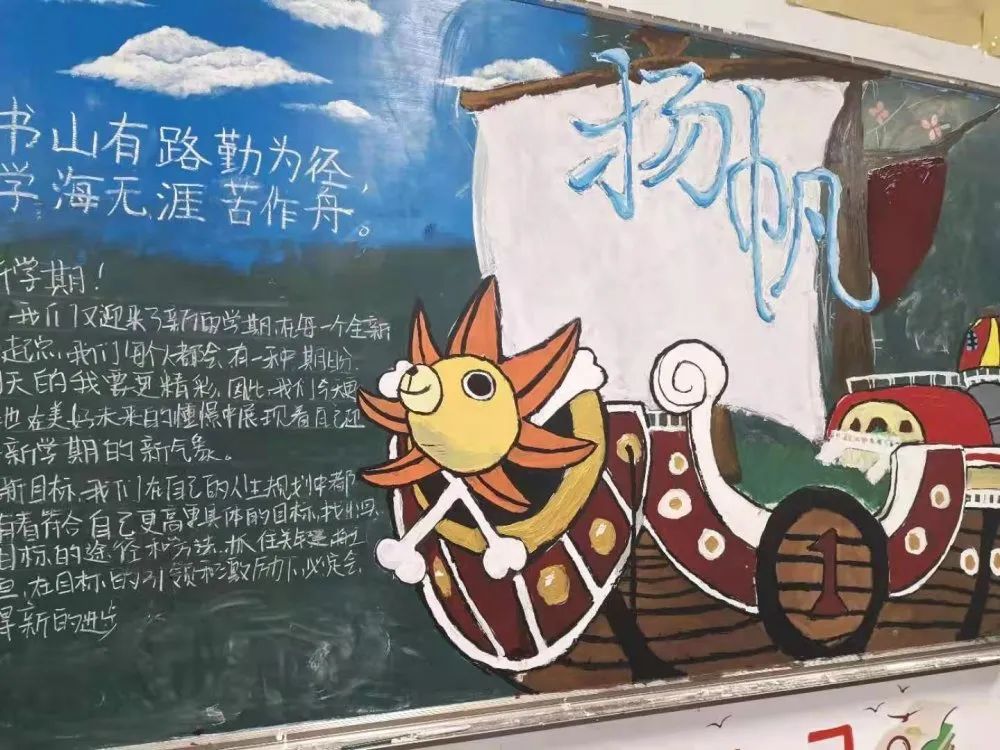 书山有路勤为径，
学海无涯苦作舟。
扬帆
新学期！
我们又迎来了新的学期,在每一个全新
起点,我们每个人都会有一种期盼.
天的我要更精彩,因此,我们今天要
也在美好未来的憧憬中展现着自己迎
新学期的新气象。
新目标,我们在自己的人生规划中都
有着符合自己更高更具体的目标,找
目标的途径和方法,抓住
,在目标的引领和激励下,必定会
得新的进步
1